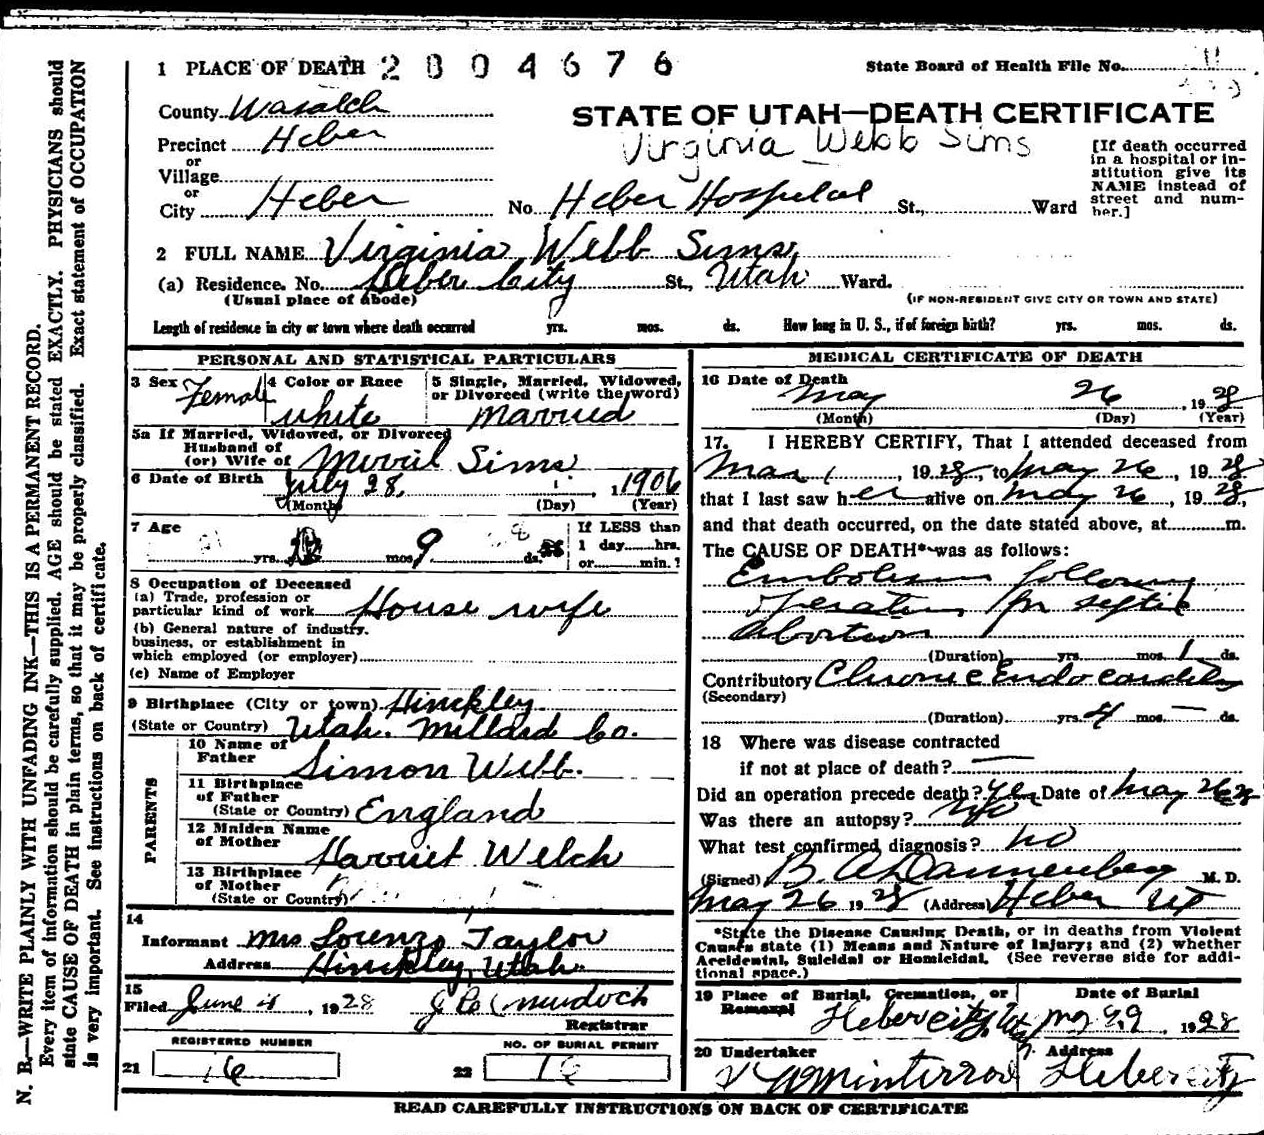 1 PLACE OF DEATH 2804676 State Board of Health File No.
County Wasatch
STATE OF UTAH—DEATH CERTIFICATE
Precinct Heber
Virginia Webb Sims
or
Village
or
City Heber No. Heber Hospital St., Ward
[If death occurred
in a hospital or in-
stitution give its
NAME instead of
street and num-
ber.]
2 FULL NAME Virginia Webb Sims
(a) Residence. No. Heber City St., Utah Ward.
(Usual place of abode) (IF NON-RESIDENT GIVE CITY OR TOWN AND STATE)
Length of residence in city or town where death occurred yrs. mos. ds. How long in U. S., if of foreign birth? yrs. mos. ds.
PERSONAL AND STATISTICAL PARTICULARS
3 Sex Female
4 Color or Race white
5 Single, Married, Widowed,
or Divorced (write the word)
Married
5a If Married, Widowed, or Divorced
Husband of
(or) Wife of Merril Sims
6 Date of Birth July 28, 1906
(Month) (Day) (Year)
7 Age yrs. mos. 9 ds.
If LESS than
1 day hrs.
or min.?
8 Occupation of Deceased
(a) Trade, profession or
particular kind of work House wife
(b) General nature of industry,
business, or establishment in
which employed (or employer)
(c) Name of Employer
9 Birthplace (City or town) Hinckley
(State or Country) Utah. Millard Co.
PARENTS
10 Name of
Father Simon Webb.
11 Birthplace
of Father
(State or Country) England
12 Maiden Name
of Mother Harriet Welch
13 Birthplace
of Mother
(State or Country)
14
Informant Mrs Lorenzo Taylor
Address Hinckley, Utah
15
Filed June 4, 1928 Murdoch
Registrar
REGISTERED NUMBER NO. OF BURIAL PERMIT
21 16 22 16
MEDICAL CERTIFICATE OF DEATH
16 Date of Death
May 26, 1928
(Month) (Day) (Year)
17. I HEREBY CERTIFY, That I attended deceased from
Mar 1, 1928, to May 26, 1928
that I last saw her alive on May 26, 1928,
and that death occurred, on the date stated above, at m.
The CAUSE OF DEATH* was as follows:
Embolism following
operation for septic
abortion
(Duration) yrs. mos. 1 ds.
Contributory Chronic Endocarditis
(Secondary)
(Duration) yrs. 4 mos. — ds.
18 Where was disease contracted
if not at place of death? —
Did an operation precede death? yes Date of May 26 28
Was there an autopsy? No
What test confirmed diagnosis? no
(Signed) B. A. Dannenberg M. D.
May 26 1928 (Address) Heber UT
*State the Disease Causing Death, or in deaths from Violent
Causes state (1) Means and Nature of Injury; and (2) whether
Accidental, Suicidal or Homicidal. (See reverse side for addi-
tional space.)
19 Place of Burial, Cremation, or
Removal Heber city, Ut
Date of Burial
May 29, 1928
20 Undertaker Address
Heber City
READ CAREFULLY INSTRUCTIONS ON BACK OF CERTIFICATE
N. B.—WRITE PLAINLY WITH UNFADING INK—THIS IS A PERMANENT RECORD.
Every item of information should be carefully supplied. AGE should be stated EXACTLY. PHYSICIANS should
state CAUSE OF DEATH in plain terms, so that it may be properly classified. Exact statement of OCCUPATION
is very important. See instructions on back of certificate.